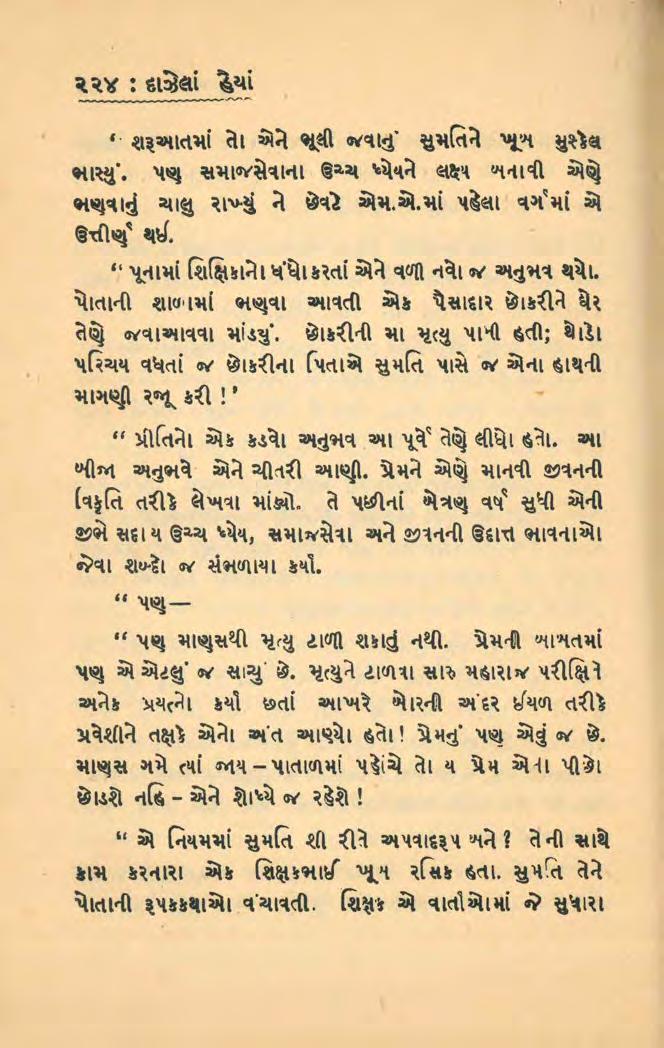 ૨૨૪ : દાઝેલાં હૈયાં
‘ શરૂઆતમાં તો એને ભૂલી જવાનું સુમતિને ખૂબ મુશ્કેલ
ભાસ્યું. પણ સમાજસેવાના ઉચ્ચ ધ્યેયને લક્ષ્ય બનાવી એણે
ભણવાનું ચાલુ રાખ્યું ને છેવટે એમ.એ.માં પહેલા વર્ગમાં એ
ઉત્તીર્ણ થઈ.
“ પૂનામાં શિક્ષિકાનો ધંધો કરતાં એને વળી નવો જ અનુભવ થયો.
પોતાની શાળામાં ભણવા આવતી એક પૈસાદાર છોકરીને ઘેર
તેણે જવાઆવવા માંડયું. છોકરીની મા મૃત્યુ પામી હતી; થોડો
પરિચય વધતાં જ છોકરીના પિતાએ સુમતિ પાસે જ એના હાથની
માગણી રજૂ કરી ! ’
“ પ્રીતિનો એક કડવો અનુભવ આ પૂર્વે તેણે લીધો હતો. આ
બીજા અનુભવે એને ચીતરી આણી. પ્રેમને એણે માનવી જીવનની
વિકૃતિ તરીકે લેખવા માંડ્યો. તે પછીનાં બેત્રણ વર્ષ સુધી એની
જીભે સદાય ઉચ્ચ ધ્યેય, સમાજસેવા અને જીવનની ઉદાત્ત ભાવનાઓ
જેવા શબ્દો જ સંભળાયા કર્યાં.
“ પણ —
“ પણ માણસથી મૃત્યુ ટાળી શકાતું નથી. પ્રેમની બાબતમાં
પણ એ એટલું જ સાચું છે. મૃત્યુને ટાળવા સારુ મહારાજ પરીક્ષિતે
અનેક પ્રયત્નો કર્યા છતાં આખરે બોરની અંદર ઈયળ તરીકે
પ્રવેશીને તક્ષકે એનો અંત આણ્યો હતો! પ્રેમનું પણ એવું જ છે.
માણસ ગમે ત્યાં જાય – પાતાળમાં પહોંચે તો ય પ્રેમ એના પીછો
છોડશે નહિ – એને શોધ્યે જ રહેશે !
“ એ નિયમમાં સુમતિ શી રીતે અપવાદરૂપ બને ? તેની સાથે
કામ કરનારા એક શિક્ષકભાઈ ખૂબ રસિક હતા. સુમતિ તેને
પોતાની રૂપકકથાઓ વંચાવતી. શિક્ષક એ વાર્તાઓમાં જે સુધારા